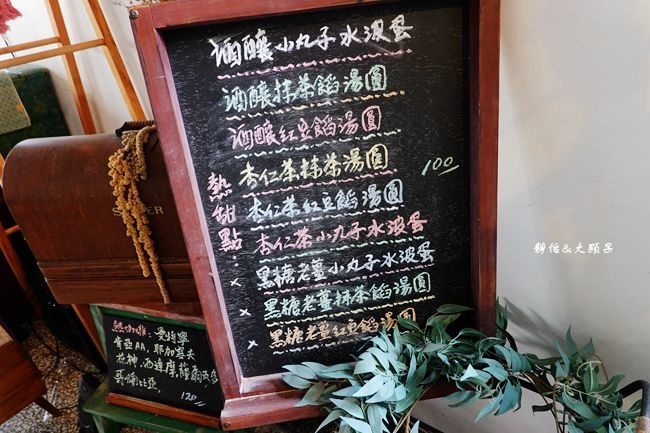 酒釀小丸子水波蛋
酒釀抹茶餡湯圓
酒釀紅豆餡湯圓
杏仁茶抹茶湯圓
100
杏仁茶紅豆餡湯圓
杏仁茶小丸子水波蛋
黑糖老薑小丸子水波蛋
黑糖老薑抹茶餡湯圓
黑糖老薑紅豆餡湯圓
熱甜點:
熱咖啡:曼特寧
肯亞AA,耶加雪夫
哥倫比亞
120
靜怡&大顆呆